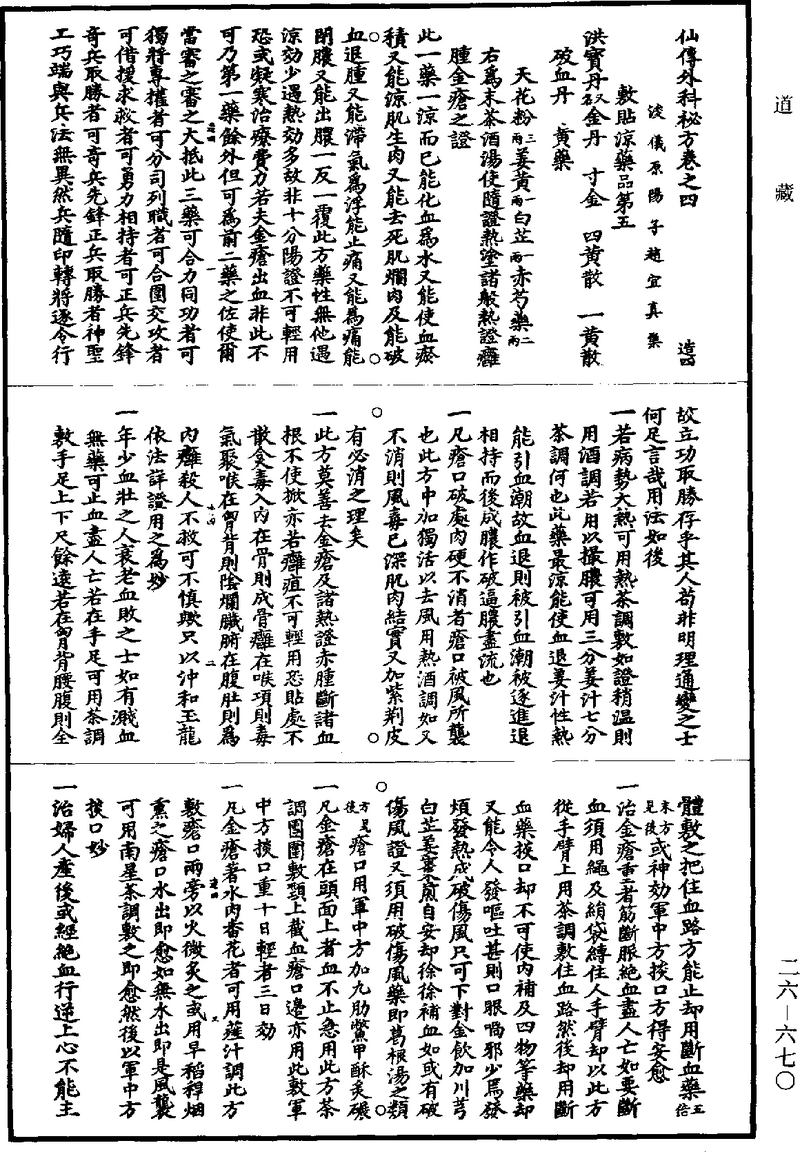 道藏
仙傳外科秘方卷之四 造四
浚儀原陽子趙宜真集
敷貼涼藥品第五
洪寶丹又名金丹 寸金 四黃散 一黃散
破血丹 黃藥
天花粉三兩薑黃一兩白芷一兩赤芍藥二兩
右為末茶酒湯使隨證熱塗諸般熱證癰
腫金瘡之證
此一藥一涼而已能化血為水又能使血瘀
積又能涼肌生肉又能去死肌爛肉及能破
血退腫又能滯氣為浮能止痛又能為痛能
閉膿又能出膿一反一覆此方藥性無他遇
涼効少遇熱効多故非十分陽證不可輕用
恐或凝寒治療費力若夫金瘡出血非此不
可乃第一藥餘外但可為前二藥之佐使爾
當審之審之大抵此三藥可合力同功者可
獨將專權者可分司列職者可合圍交攻者
可借援求救者可勇力相持者可正兵先鋒
奇兵取勝者可奇兵先鋒正兵取勝者神聖
工巧端與兵法無異然兵隨印轉將逐令行
故立功取勝存乎其人苟非明理通變之士
何足言哉用法如後
一若病勢大熱可用熱茶調敷如證稍溫則
用酒調若用以撮膿可用三分姜汁七分
茶調何也此藥最涼能使血退姜汁性熱
能引血潮故血退則被引血潮被逐進退
相持而後成膿作破逼膿盡流也
一凡瘡口破處肉硬不消者瘡口被風所襲
也此方中加獨活以去風用熱酒調如又
不消則風毒已深肌肉結實又加紫荆皮
有必消之理矣
一此方莫善去金瘡及諸熱證赤腫斷諸血
根不使掀亦若癰疽不可輕用恐貼處不
散㑹毒入內在骨則成骨癰在喉項則毒
氣聚喉在胷背則陰爛臟腑在腹肚則為
內癰殺人不救可不慎歟只以沖和玉龍
依法詳證用之為妙
一年少血壯之人衰老血敗之士如有濺血
無藥可止血盡人亡若在手足可用茶調
敷手足上下尺餘遠若在胷背腰腹則全
體敷之把住血路方能止却用斷血藥五倍
末方見後或神効軍中方掞口方得安愈
一治金瘡重者筋斷脉絕血盡人亡如要斷
血須用繩及絹袋縛住人手臂却以此方
從手臂上用茶調敷住血路然後却用斷
血藥掞口却不可使內補及四物等藥却
又能令人發嘔吐甚則口眼喎邪少焉發
煩發熱成破傷風只可下對金飲加川芎
白芷姜棗煎自安却徐徐補血如或有破
傷風證又須用破傷風藥即葛根湯之類
方見後瘡口用軍中方加九肋鱉甲酥炙碾
一凡金瘡在頭面上者血不止急用此方茶
調團圍敷頸上截血瘡口邊亦用此敷軍
中方掞口重十日輕者三日効
一凡金瘡著水肉番花者可用薤汁調此方
敷瘡口兩旁以火微炙之或用早稻稈烟
熏之瘡口水出即愈如無水出即是風襲
可用南星茶調敷之即愈然後以軍中方
掞口妙
一治婦人產後或經絕血行逆上心不能主
二六—六七〇